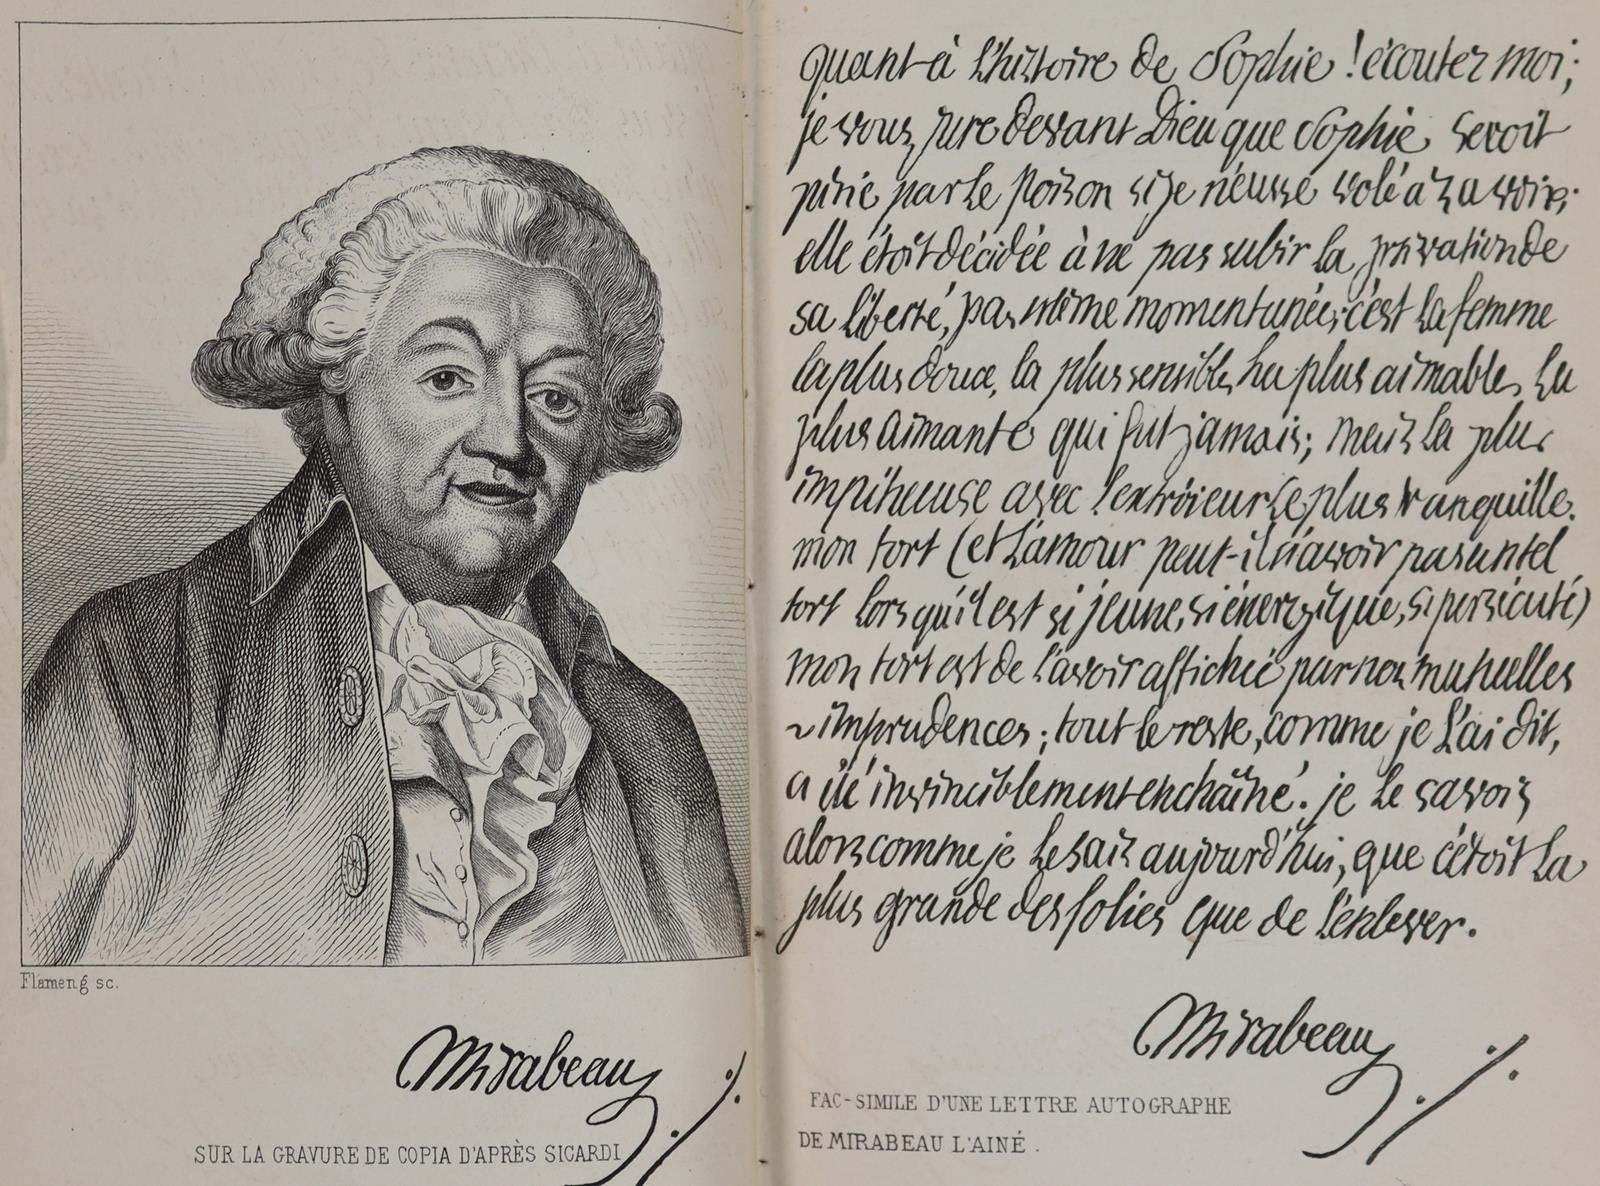 Flameng sc.
Mirabeau
SUR LA GRAVURE DE COPIA D'APRÈS SICARDI
quant à l'histoire de Sophie ! écoutez moi;
je vous jure devant Dieu que Sophie seroit
périe par le poison si je n'eusse volé à sa voix;
elle étoit décidée à ne pas subir la privation de
sa liberté, pas même momentanée; c'est la femme
la plus douce, la plus sensible, la plus aimable, la
plus aimante qui fut jamais; mais la plus
impétueuse avec l'extérieur le plus tranquille.
mon tort (et l'amour peut-il n'avoir pas un tel
tort lorsqu'il est si jeune, si énergique, si persécuté)
mon tort est de l'avoir affiché par nos mutuelles
imprudences; tout le reste, comme je l'ai dit,
a été invinciblement enchaîné. je le savois
alors comme je le sais aujourd'hui, que c'étoit la
plus grande des folies que de l'enlever.
Mirabeau
FAC-SIMILE D'UNE LETTRE AUTOGRAPHE
DE MIRABEAU L'AINÉ.